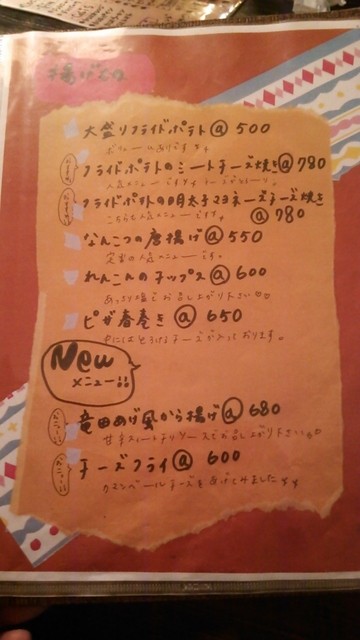 揚げもの
大盛りフライドポテト@ 500
ボリュームありです。
フライドポテトのミートチーズ焼き@ 780
人気メニューです
フライドポテトの明太子マヨネーズチーズ焼き
こちらも人気メニューです。 @ 780
なんこつの唐揚げ@ 550
定番の人気メニューです。
れんこんのチップス@ 600
あっさり塩でお召し上がり下さい♡♡
ピザ春巻き@ 650
中にはとろけるチーズが入っております。
New
メニュー品
竜田あげ風から揚げ@ 680
甘辛スイートチリソースでお召し上がり下さい
チーズフライ@ 600
カマンベールチーズをあげてみました